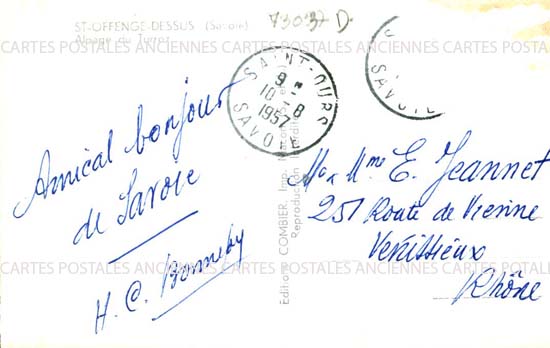 ST-OFFENGE-DESSUS (Savoie)
73037 D.
SAINT-OURS
9 H
10 - 8
1957
SAVOIE
SAVOIE
CARTES POSTALES ANCIENNES CARTES POSTALES ANCIENNES CARTES POSTALES ANCIENNES
Amical bonjour
de Savoie
Editions COMBIER, Imp.
Reproduction Interdite
M & Mme E. Jeannet
251 Route de Vienne
Venissieux
Rhône
CARTES POSTALES ANCIENNES CARTES POSTALES ANCIENNES CARTES POSTALES ANCIENNES
H. C.